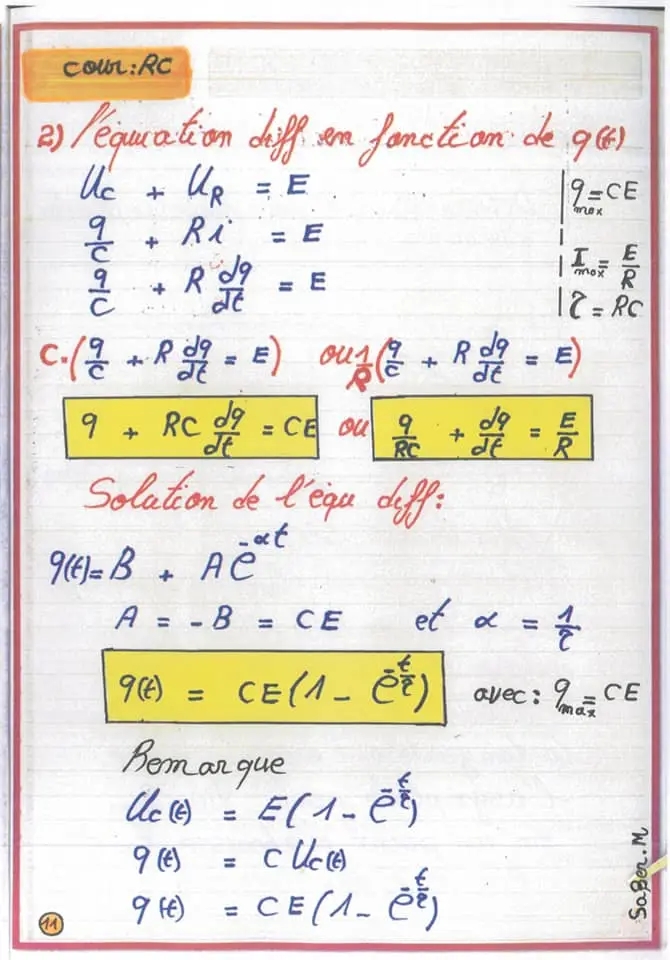 cour: RC
2) l'équation diff en fonction de q(t)
Uc + UR = E
q/C + Ri = E
q/C + R dq/dt = E
qmax = CE
Imax = E/R
τ = RC
C.(q/C + R dq/dt = E) ou 1/R (q/C + R dq/dt = E)
q + RC dq/dt = CE ou q/RC + dq/dt = E/R
Solution de l'équ diff:
q(t) = B + A e^-αt
A = - B = CE et α = 1/τ
q(t) = CE(1 - e^-t/τ) avec: qmax = CE
Remarque
Uc(t) = E(1 - e^-t/τ)
q(t) = C Uc(t)
q(t) = CE(1 - e^-t/τ)
11
SaBer.M